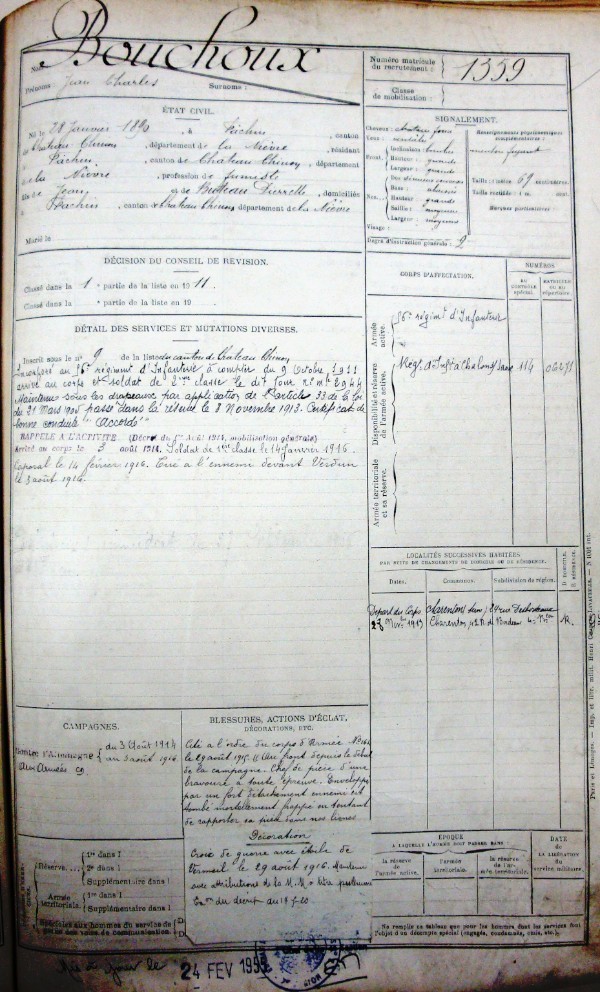 Bouchoux
Nom :
Prénoms : Jean Charles Surnoms :
Numéro matricule
du recrutement : 1339
Classe
de mobilisation :
ÉTAT CIVIL.
Né le 28 Janvier 1890, à Fachin, canton
de Chateau Chinon, département de la Nièvre, résidant
à Fachin, canton de Chateau Chinon, département
de la Nièvre, profession de fumiste
fils de Jean et de Buteau Pierrette, domiciliés
à Fachin, canton de Chateau Chinon département de la Nièvre
Marié le
SIGNALEMENT.
Cheveux :
Yeux :
Inclinaison :
Front. Hauteur : grande
Largeur : grande
Nez. Base : abaissée
Hauteur : grande
Saillie : moyenne
Largeur : moyenne
Visage :
Renseignements physionomiques
complémentaires :
menton fuyant
Taille : 1 mètre 69 centimètres.
Taille rectifiée : 1 m. cent.
Marques particulières :
Degré d'instruction générale : 2
DÉCISION DU CONSEIL DE RÉVISION.
Classé dans la 1e partie de la liste en 1911.
Classé dans la e partie de la liste en 19
DÉTAIL DES SERVICES ET MUTATIONS DIVERSES.
Inscrit sous le n° 9 de la liste du canton de Chateau Chinon
Incorporé au 56e régiment d'Infanterie à compter du 9 Octobre 1911
arrivé au corps et soldat de 2eme classe le dit jour n° mle 2944
Maintenu sous les drapeaux par application de l'article 33 de la loi
du 21 Mars 1905 passé dans la réserve le 8 Novembre 1913. Certificat de
bonne conduite "Accordé"
RAPPELÉ A L'ACTIVITÉ (Décret du 1er Août 1914, mobilisation générale)
Arrivé au corps le 3 août 1914. Soldat de 1ère classe le 14 janvier 1916.
Caporal le 14 février 1916. Tué à l'ennemi devant Verdun
le 3 août 1916.
CORPS D'AFFECTATION.
NUMÉROS
AU
CONTRÔLE
spécial.
MATRICULE
OU AU
répertoire.
Armée
active.
56e régimt d'Infanterie
Disponibilité et réserve
de l'armée active.
Régt d'Infie à Chalon s/ Saône 114
Armée territoriale
et sa réserve.
LOCALITÉS SUCCESSIVES HABITÉES
PAR SUITE DE CHANGEMENTS DE DOMICILE OU DE RÉSIDENCE.
Dates.
Communes.
Subdivision de région.
D. DOMICILE.
R. RÉSIDENCE.
Départ du Corps Charenton
Charenton, 42 R. de R.
CAMPAGNES.
Contre l'Allemagne du 3 Août 1914
aux Armées au 3 août 1916
BLESSURES, ACTIONS D'ÉCLAT,
DÉCORATIONS, ETC.
Cité à l'ordre du corps d'Armée
le 29 août 1916. "Au front depuis le début
de la campagne. Chef de pièce d'une
bravoure à toute épreuve. Enveloppé
par un fort détachement ennemi est
tombé mortellement frappé en tentant
de rapporter sa pièce dans nos lignes
Décoration
Croix de guerre avec étoile de
Vermeil le 29 août 1916.
avec attributions de la M. M. à titre posthume
ÉPOQUE
A LAQUELLE L'HOMME DOIT PASSER DANS
la réserve
de
l'armée active.
l'armée
territoriale.
la réserve
de l'ar-
mée territoriale.
DATE
DE LA LIBÉRATION
du
service militaire.
Réserve
1re dans l
2e dans l
Supplémentaire dans l
Armée
territoriale.
1re dans l
Supplémentaire dans l
Spéciales aux hommes du service de
garde des voies de communication.
Ne remplir ce tableau que pour les hommes dont les services font
l'objet d'un décompte spécial (engagés, condamnés, omis, etc.).
24 FEV 195